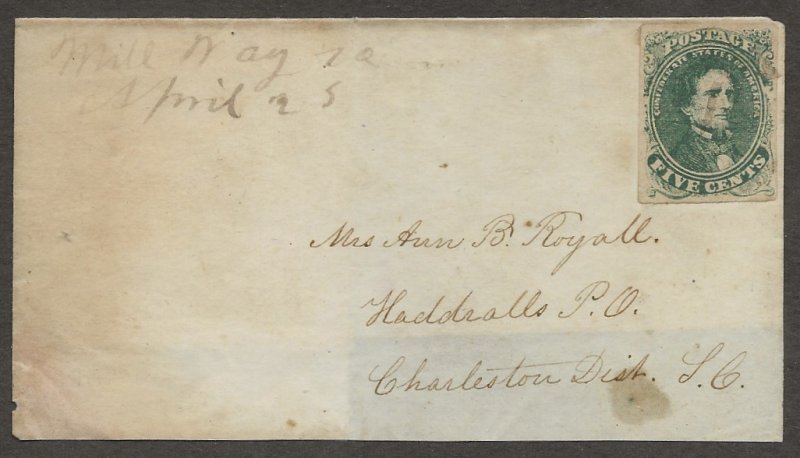 Mill Way
April 25
POSTAGE
CONFEDERATE STATES OF AMERICA
FIVE CENTS
Mrs Ann B. Royall.
Haddralls P.O.
Charleston Dist. S.C.